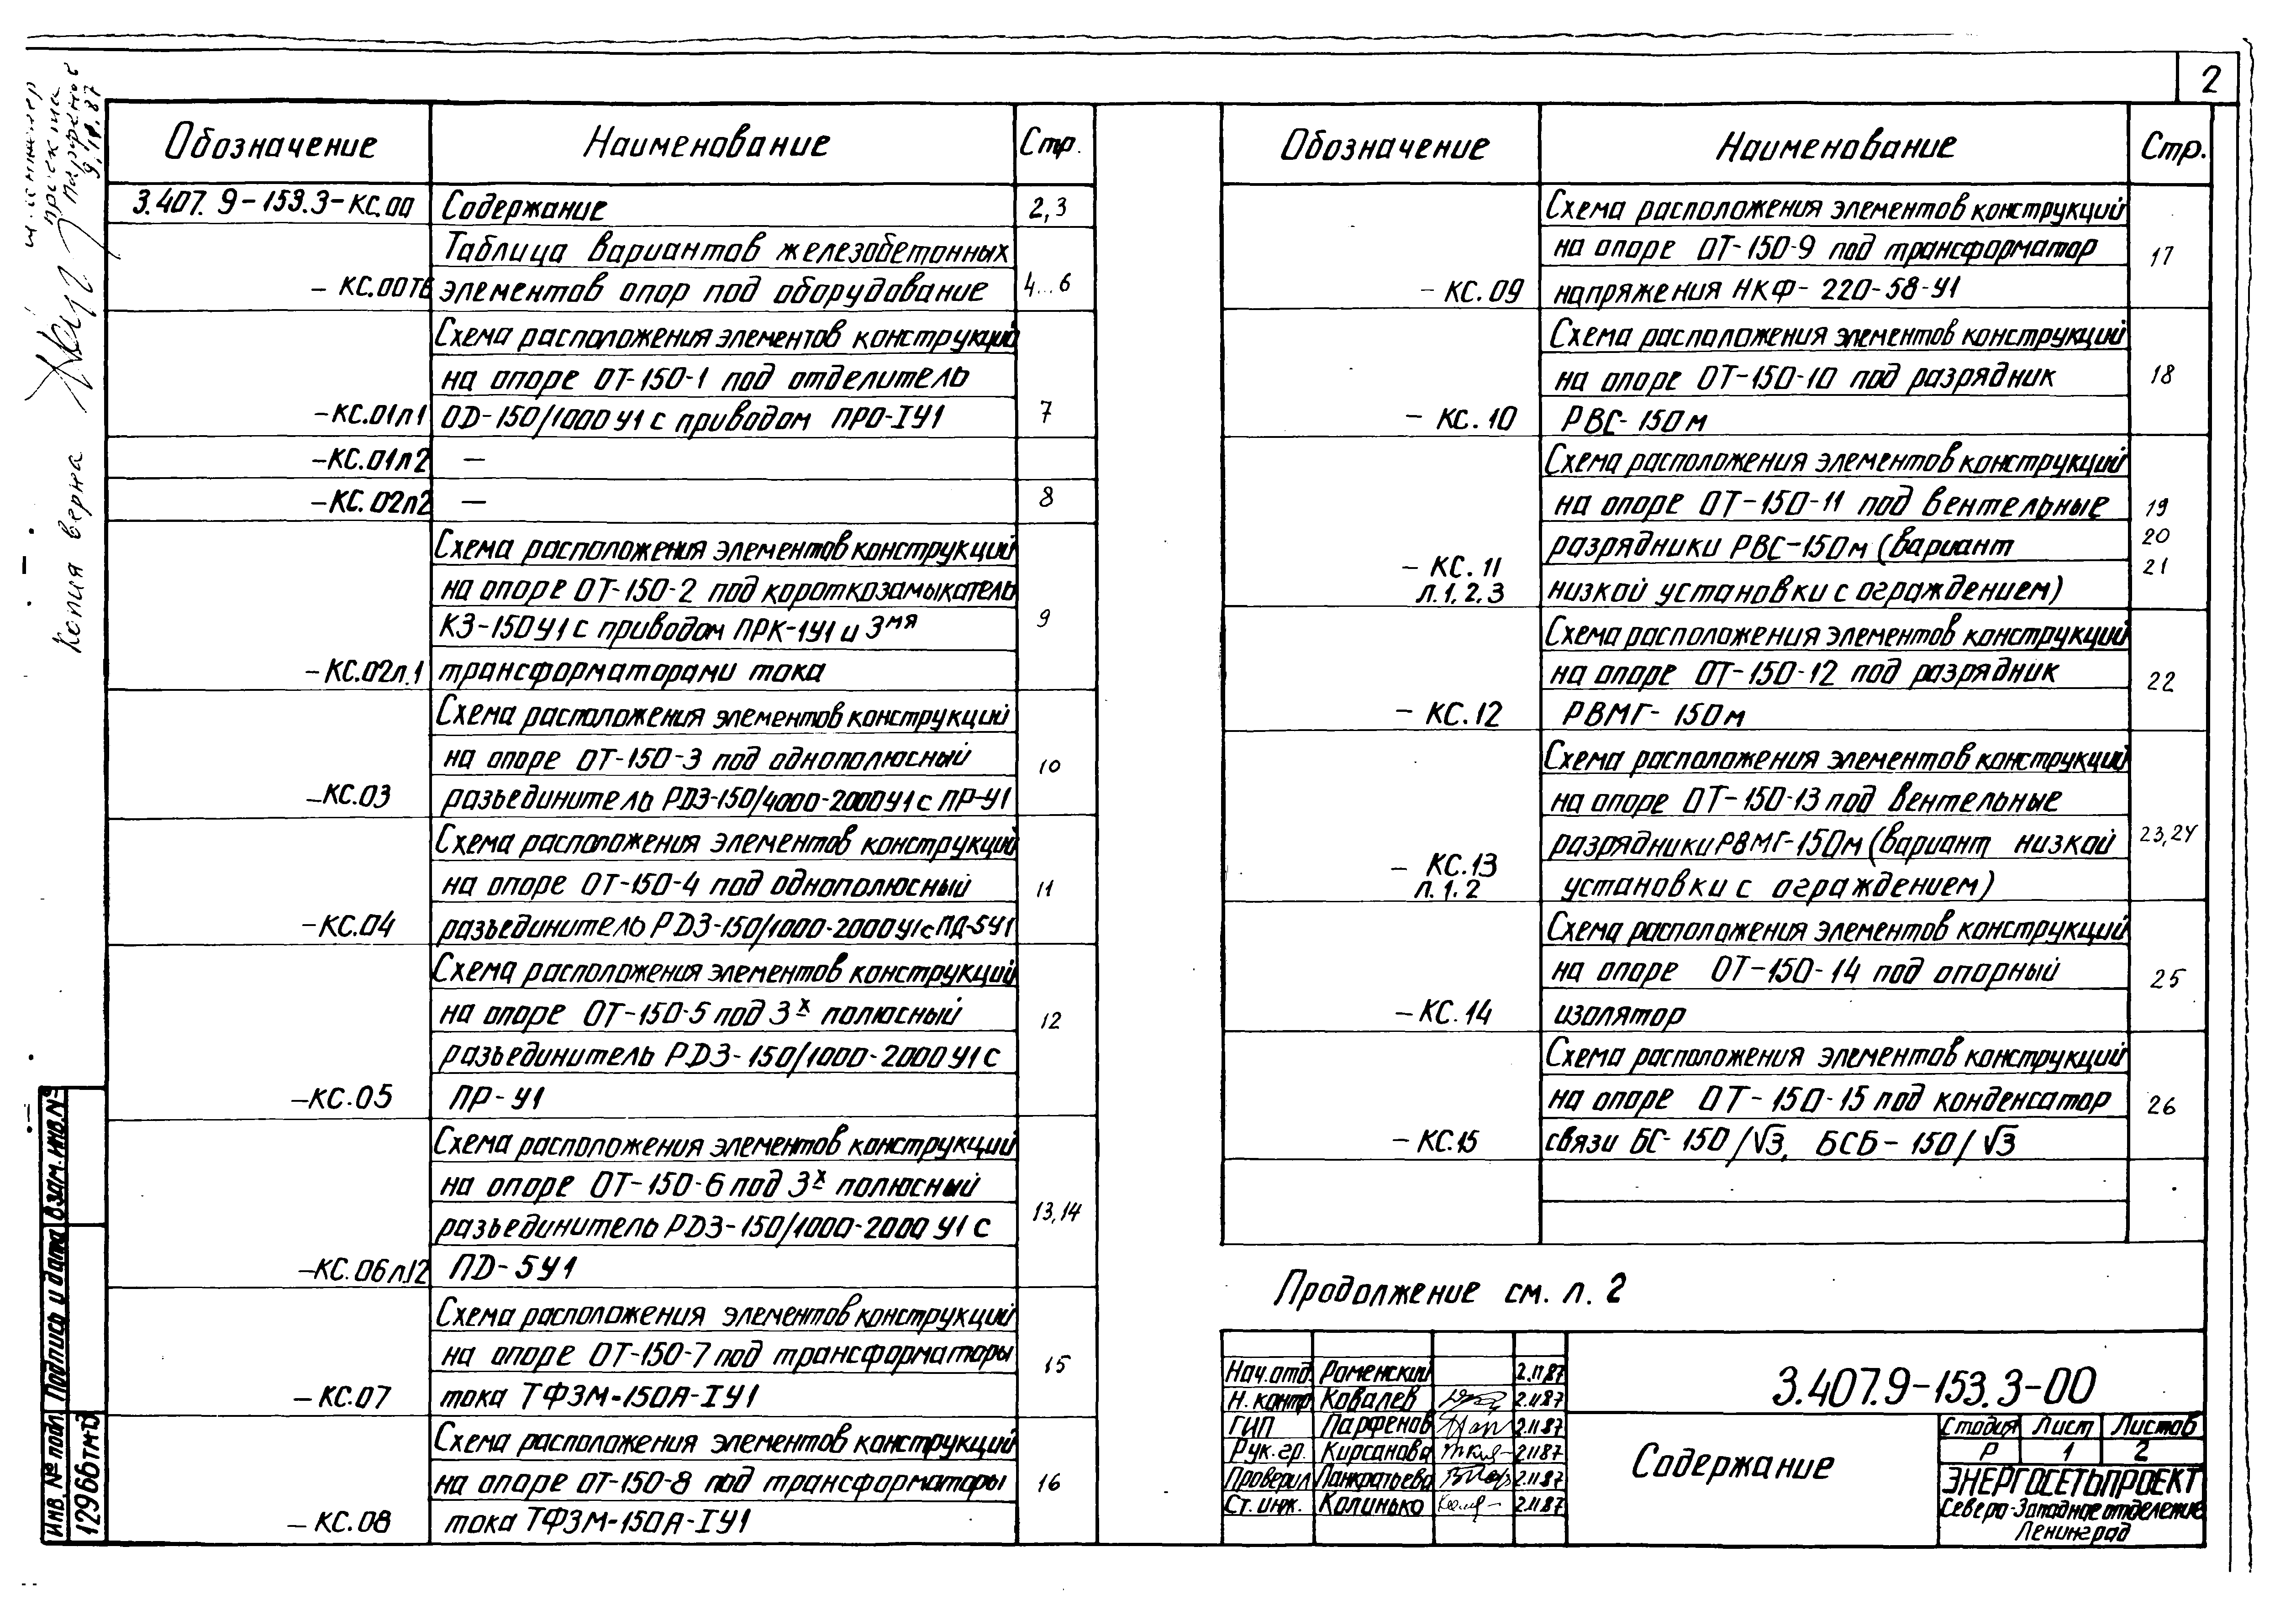 2
Обозначение Наименование Стр.
3.407.9-153.3-КС.00 Содержание 2,3
Таблица вариантов железобетонных
- КС.00ТВ элементов опор под оборудование 4...6
Схема расположения элементов конструкций
на опоре ОТ-150-1 под отделитель
-КС.01л1 ОД-150/1000У1 с приводом ПРО-IУ1 7
-КС.01л2 —
-КС.02л2 — 8
Схема расположения элементов конструкций
на опоре ОТ-150-2 под короткозамыкатель
КЗ-150У1 с приводом ПРК-1У1 и 3мя 9
-КС.02л.1 трансформаторами тока
Схема расположения элементов конструкций
на опоре ОТ-150-3 под однополюсный 10
-КС.03 разъединитель РДЗ-150/4000-2000У1 с ПР-У1
Схема расположения элементов конструкций
на опоре ОТ-150-4 под однополюсный 11
-КС.04 разъединитель РДЗ-150/1000-2000У1с ПД-5У1
Схема расположения элементов конструкций
на опоре ОТ-150-5 под 3х полюсный 12
разъединитель РДЗ-150/1000-2000У1 с
-КС.05 ПР-У1
Схема расположения элементов конструкций
на опоре ОТ-150-6 под 3х полюсный
разъединитель РДЗ-150/1000-2000 У1 с 13,14
-КС.06л.12 ПД-5У1
Схема расположения элементов конструкций
на опоре ОТ-150-7 под трансформаторы 15
-КС.07 тока ТФЗМ-150А-IУ1
Схема расположения элементов конструкций
на опоре ОТ-150-8 под трансформаторы 16
-КС.08 тока ТФЗМ-150А-IУ1
Обозначение Наименование Стр.
Схема расположения элементов конструкций
на опоре ОТ-150-9 под трансформатор 17
- КС.09 напряжения НКФ-220-58-У1
Схема расположения элементов конструкций
на опоре ОТ-150-10 под разрядник 18
- КС.10 РВС-150м
Схема расположения элементов конструкций
на опоре ОТ-150-11 под вентельные 19
разрядники РВС-150м (вариант 20
- КС.11 21
л.1,2,3 низкой установки с ограждением)
Схема расположения элементов конструкций
на опоре ОТ-150-12 под разрядник 22
- КС.12 РВМГ-150м
Схема расположения элементов конструкций
на опоре ОТ-150-13 под вентельные
разрядники РВМГ-150м (вариант низкой 23,24
- КС.13
л.1.2 установки с ограждением)
Схема расположения элементов конструкций
на опоре ОТ-150-14 под опорный 25
- КС.14 изолятор
Схема расположения элементов конструкций
на опоре ОТ-150-15 под конденсатор 26
- КС.15 связи БС-150/√3, БСБ-150/√3
Продолжение см. л. 2
Нач.отд Роменский 2.11.87
Н.контр Ковалев 2.11.87
ГИП Парфенов 2.11.87
Рук.гр. Кирсанова 2.11.87
Проверил Панкратьева 2.11.87
Ст.инж. Калинько 2.11.87
3.407.9-153.3-00
Содержание
Стадия Лист Листов
Р 1 2
ЭНЕРГОСЕТЬПРОЕКТ
Северо-Западное отделение
Ленинград
Копия верна
инженер
проекта
Парфенов
9.11.87
Инв.№ подл. Подпись и дата Взам.инв.№
12966тм-